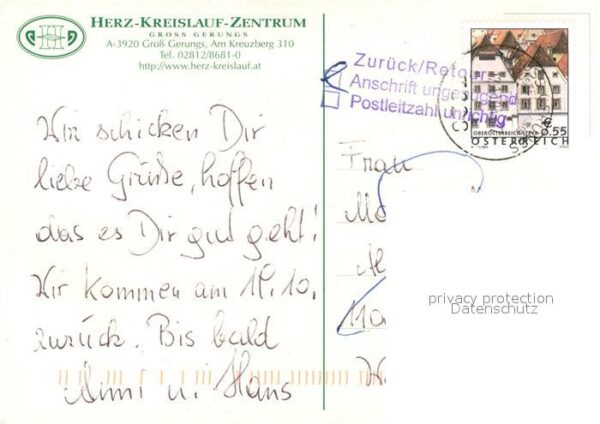 HERZ-KREISLAUF-ZENTRUM
GROSS GERUNGS
A-3920 Groß Gerungs, Am Kreuzberg 310
Tel. 02812/8681-0
http://www.herz-kreislauf.at
Wir schicken Dir
liebe Grüße, hoffen
das es Dir gut geht!
Wir kommen am 19.10.
zurück. Bis bald
Anni u. Hans
Zurück/Retour
Anschrift ungenügend
Postleitzahl unrichtig
0.55
ÖSTERREICH
Frau
privacy protection
Datenschutz